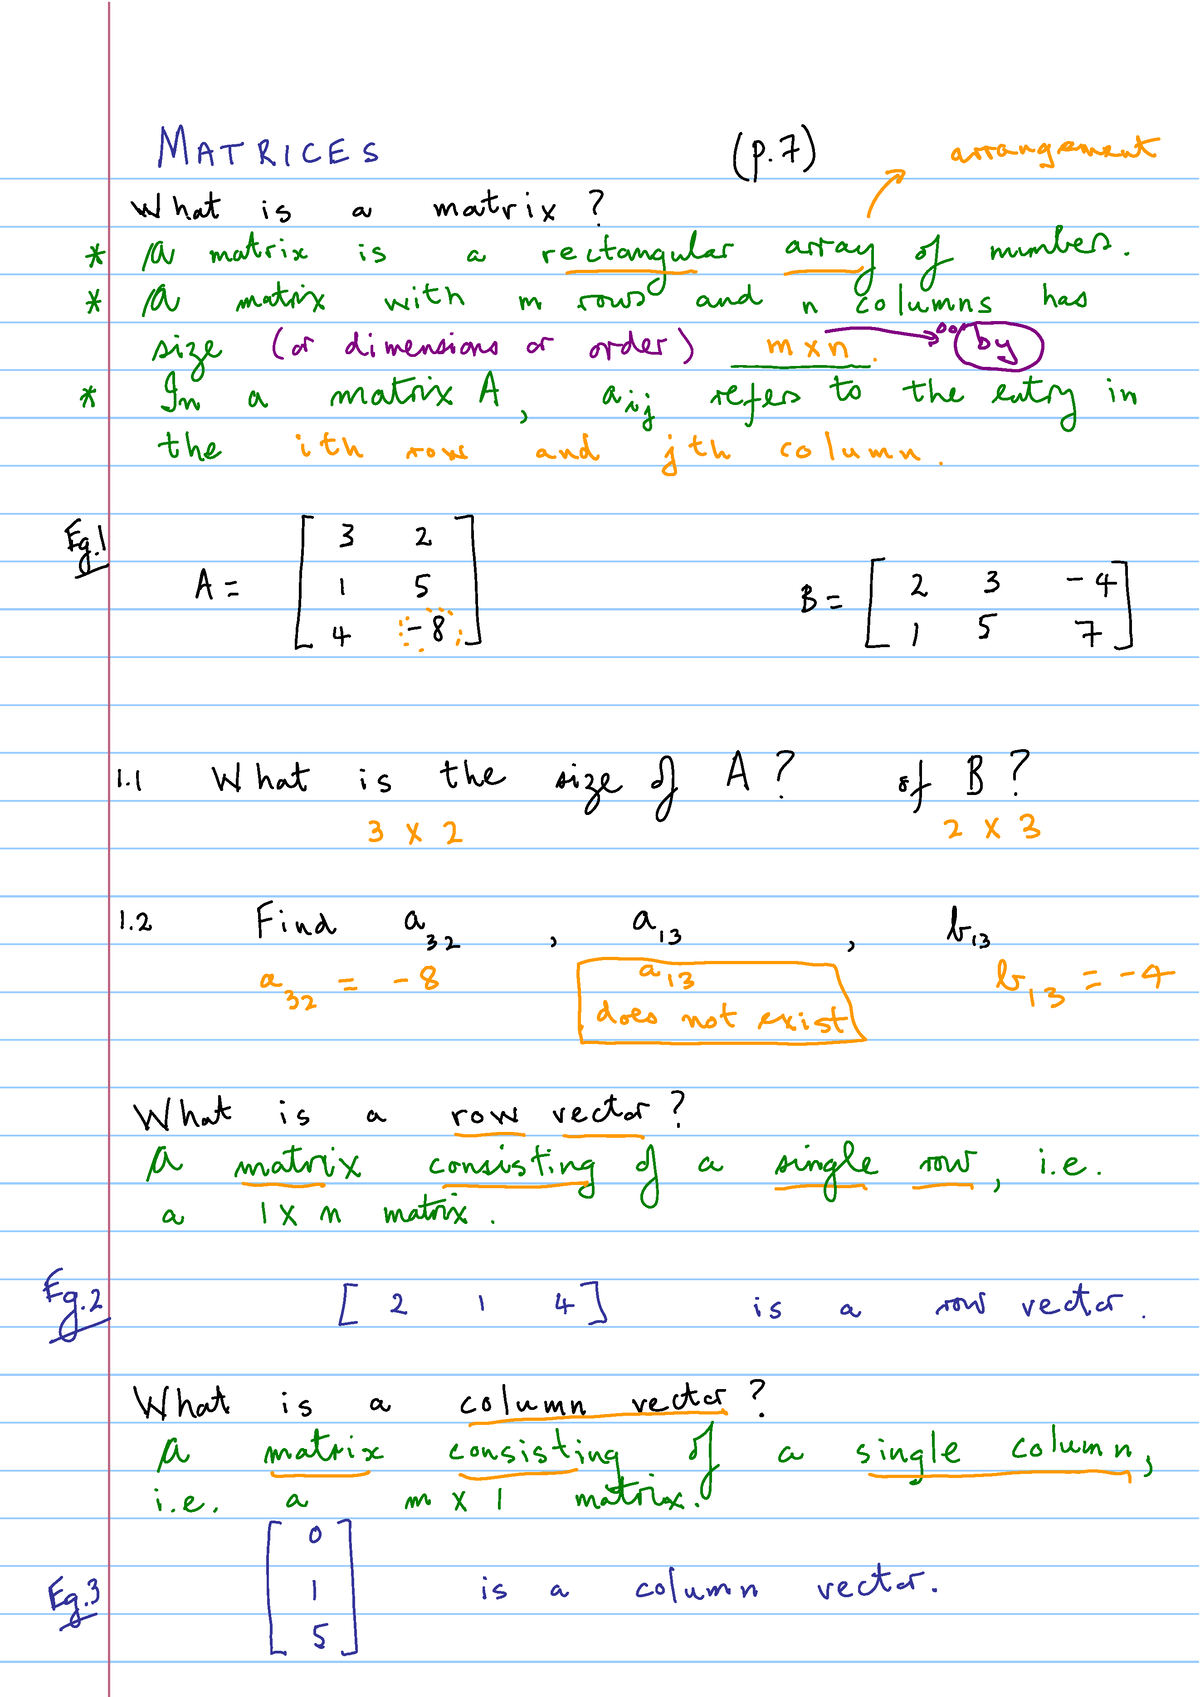 MATRICES (p.7) arrangement
What is a matrix ?
* A matrix is a rectangular array of numbers.
* A matrix with m rows and n columns has
size (or dimensions or order) m x n. "by"
* In a matrix A, aij refers to the entry in
the ith row and jth column.
Eg.1
A = [ 3 2
1 5
4 -8 ]
B = [ 2 3 -4
1 5 7 ]
1.1 What is the size of A ? of B ?
3 x 2 2 x 3
1.2 Find a32 , a13 , b13
a32 = -8 a13 does not exist b13 = -4
What is a row vector ?
A matrix consisting of a single row, i.e.
a 1 x n matrix.
Eg.2 [ 2 1 4 ] is a row vector.
What is a column vector ?
A matrix consisting of a single column,
i.e. a m x 1 matrix.
Eg.3 [ 0
1
5 ] is a column vector.